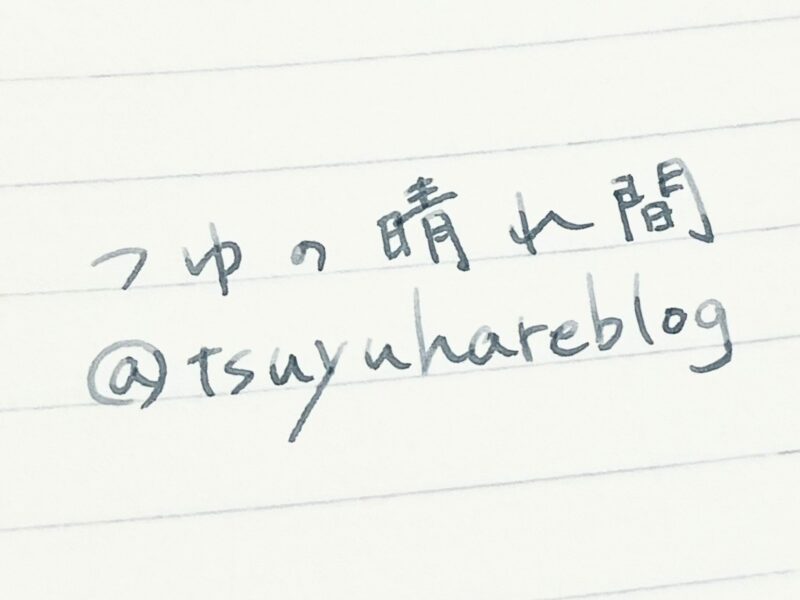 つゆの晴れ間
@tsuyuhareblog